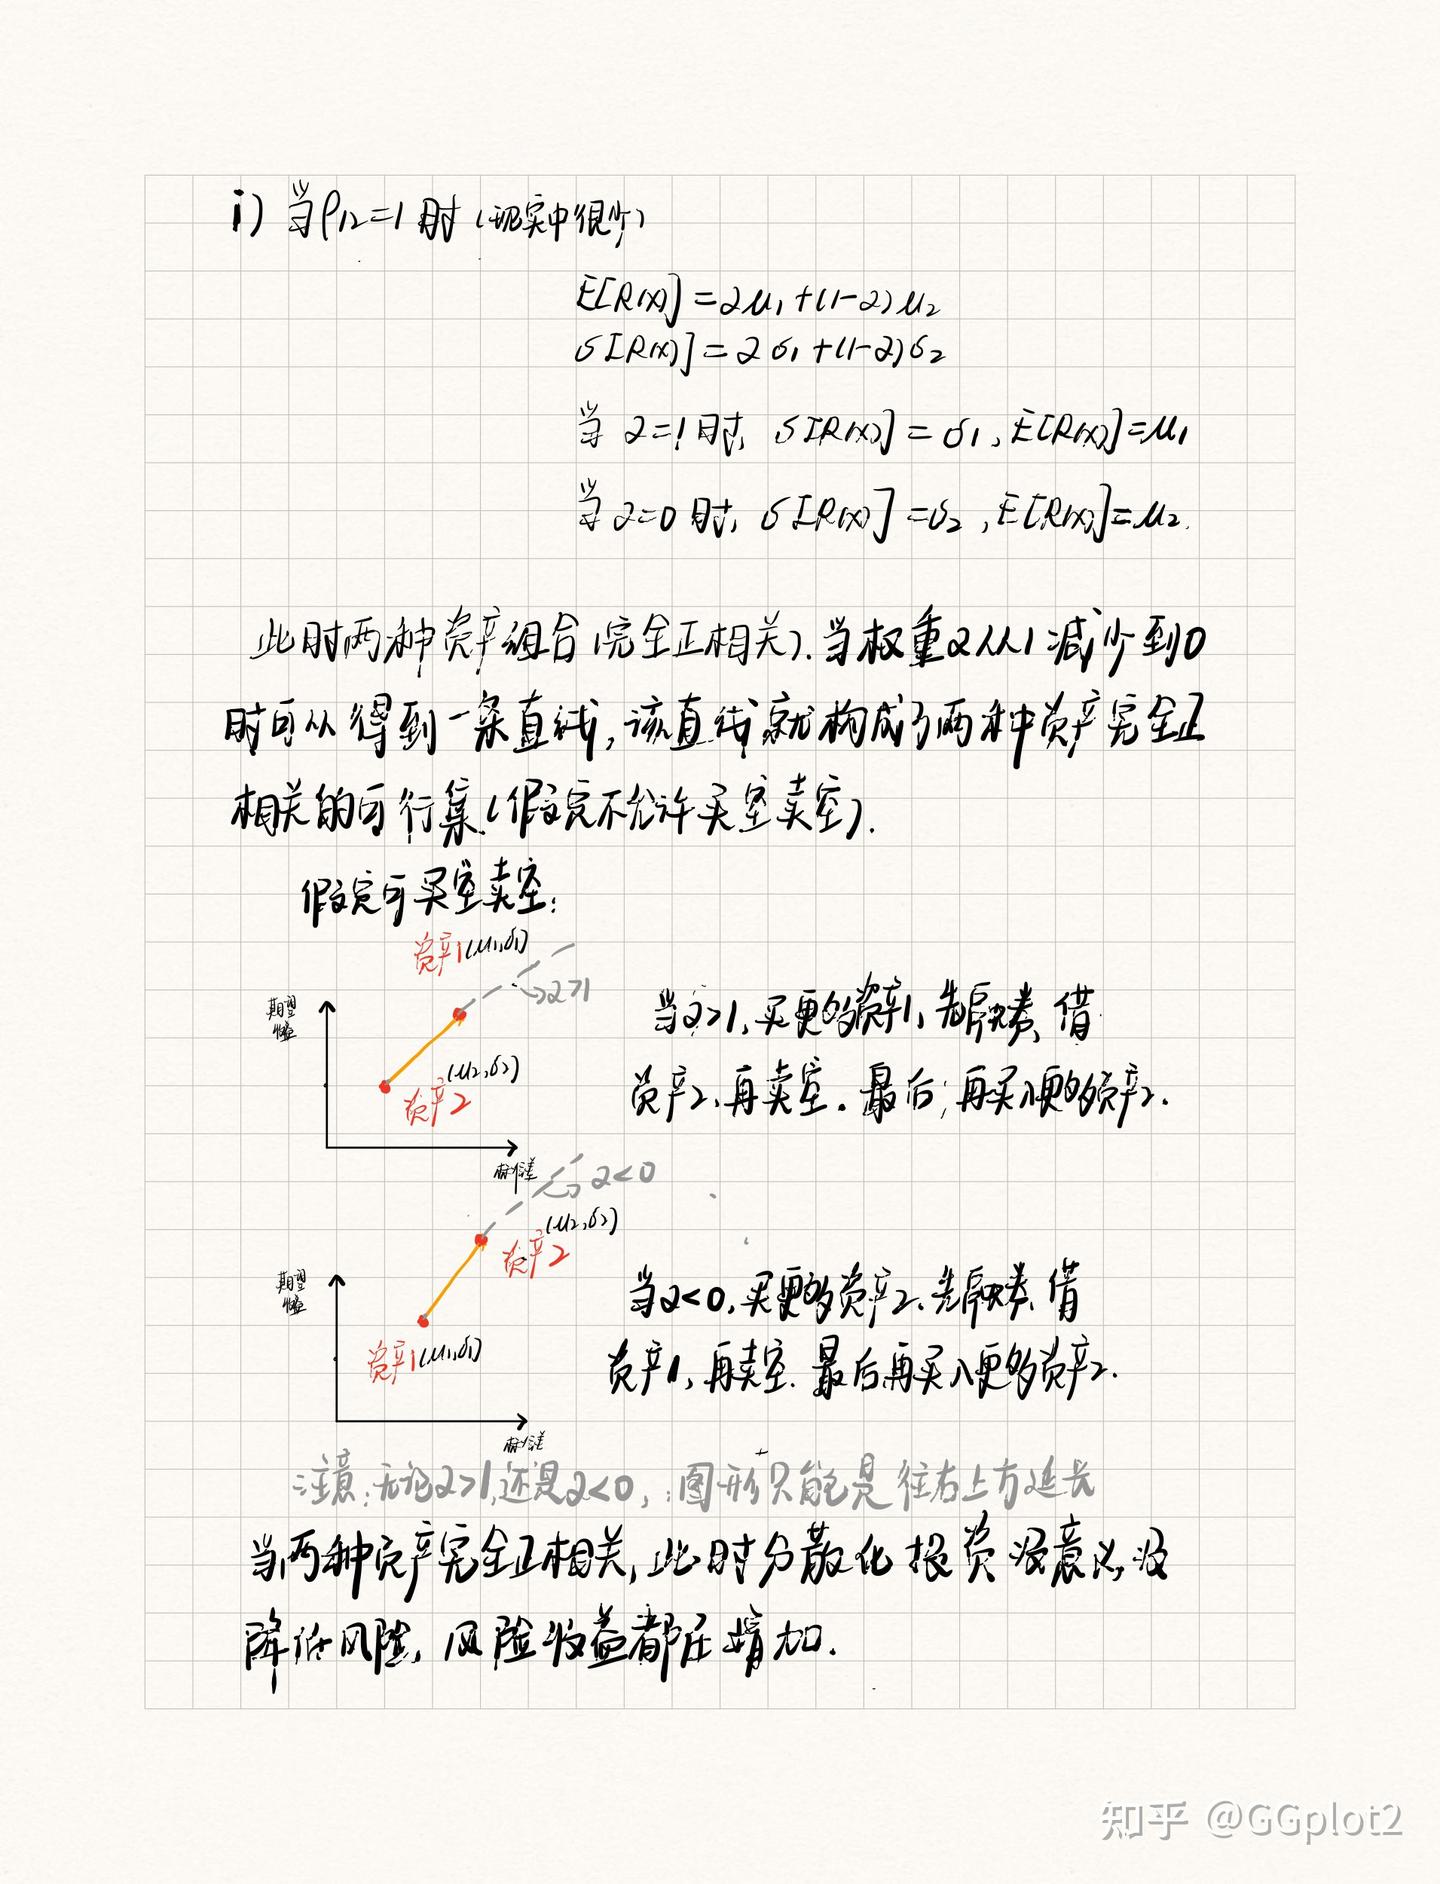 i) 当ρ12=1时(现实中很少)
E[R(x)]=αμ1+(1-α)μ2
σ[R(x)]=ασ1+(1-α)σ2
当 α=1时, σ[R(x)]=σ1, E[R(x)]=μ1
当 α=0 时, σ[R(x)]=σ2, E[R(x)]=μ2.
此时两种资产组合(完全正相关). 当权重α从1减少到0
时可以得到一条直线, 该直线就构成了两种资产完全正
相关的可行集(假设不允许买空卖空).
假设可买空卖空:
资产1(μ1,σ1)
α>1
期望
收益
(μ2,σ2)
资产2
标准差
当α>1, 买更多资产1, 先融券、借
资产2, 再卖空. 最后, 再买入更多资产2.
α<0
(μ2,σ2)
资产2
期望
收益
资产1(μ1,σ1)
标准差
当α<0, 买更多资产2、先融券、借
资产1, 再卖空. 最后再买入更多资产2.
注意:无论α>1,还是α<0, 图形只能是往右上方延长
当两种资产完全正相关, 此时分散化投资没意义, 没
降低风险, 风险收益都在增加.
知乎 @GGplot2